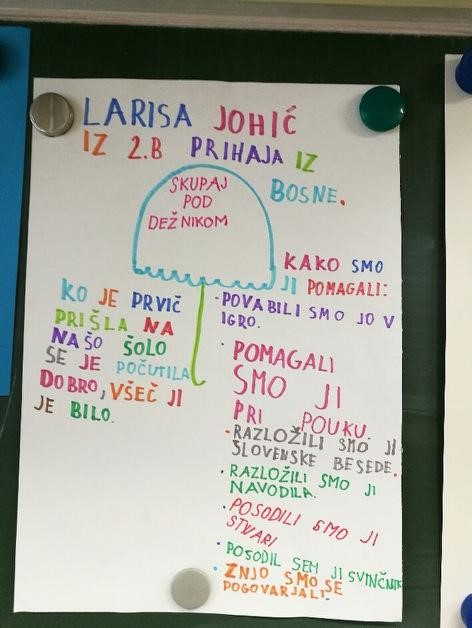 LARISA JOHIĆ
IZ 2.B PRIHAJA IZ
BOSNE.
SKUPAJ
POD
DEŽNIKOM
KO JE PRVIČ
PRIŠLA NA
NAŠO ŠOLO
SE JE POČUTILA
DOBRO, VŠEČ JI
JE BILO.
KAKO SMO
JI POMAGALI:
·POVABILI SMO JO V
IGRO.
· POMAGALI
SMO JI
PRI POUKU.
-RAZLOŽILI SMO JI
SLOVENSKE BESEDE.
·RAZLOŽILI SMO JI
NAVODILA.
·POSODILI SMO JI
STVARI
·POSODIL SEM JI SVINČNIK
·ZNJO SMO SE
POGOVARJALI.